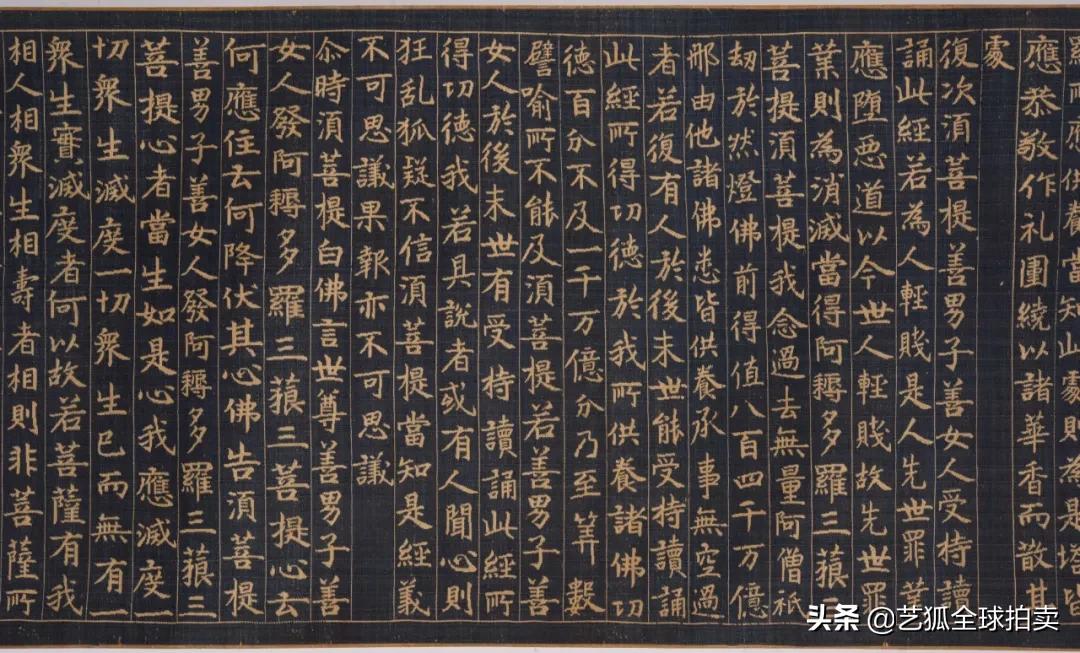 應供養當知此處則為是塔皆
應恭敬作礼圍繞以諸華香而散其
處
復次湏菩提善男子善女人受持讀
誦此經若為人輕賤是人先世罪業
應堕惡道以今世人輕賤故先世罪
業則為消滅當得阿耨多羅三藐三
菩提湏菩提我念過去無量阿僧祇
劫於然燈佛前得值八百四千万億
那由他諸佛悉皆供養承事無空過
者若復有人於後末世能受持讀誦
此經所得切德於我所供養諸佛切
德百分不及一千万億分乃至筭數
譬喻所不能及湏菩提若善男子善
女人於後末世有受持讀誦此經所
得切德我若具說者或有人聞心則
狂乱狐疑不信湏菩提當知是經義
不可思議果報亦不可思議
尒時湏菩提白佛言世尊善男子善
女人發阿耨多羅三藐三菩提心云
何應住云何降伏其心佛告湏菩提
善男子善女人發阿耨多羅三藐三
菩提心者當生如是心我應滅度一
切衆生滅度一切衆生已而無有一
衆生實滅度者何以故若菩薩有我
相人相衆生相壽者相則非菩薩所
头条 @艺狐全球拍卖